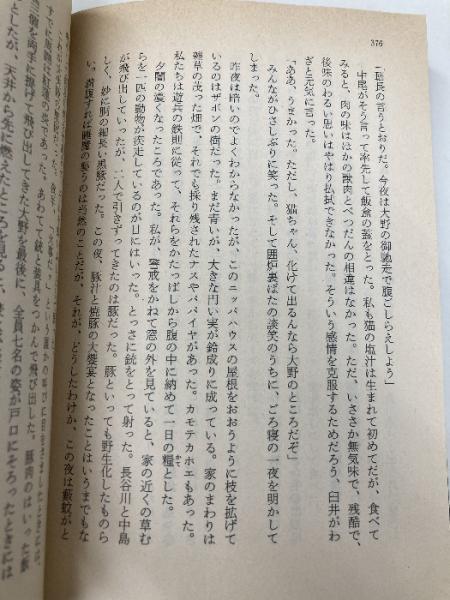 376
「班長の言うとおりだ。今夜は大野の御馳走で腹ごしらえしよう」
中尾がそう言って率先して飯盒の蓋をとった。私も猫の塩汁は生まれて初めてだが、食べて
みると、肉の味はほかの獣肉とべつだんの相違はなかった。ただ、いささか無気味で、残酷で、
後味のわるい思いはやはり払拭できなかった。そういう感情を克服するためだろう、臼井がわ
ざと元気に言った。
「ああ、うまかった。ただし、猫ちゃん、化けて出るんなら大野のところだぞ」
みんながひさしぶりに笑った。そして囲炉裏ばたの談笑のうちに、ごろ寝の一夜を明かして
しまった。
昨夜は暗いのでよくわからなかったが、このニッパハウスの屋根をおおうように枝を拡げて
いるのはザボンの樹だった。まだ青いが、大きな円い実が鈴成りに成っている。家のまわりは
雑草の茂った畑で、それでも採り残されたナスやパパイヤがあった。カモテカホエもあった。
私たちは遊兵の鉄則に従って、それらをかたっぱしから腹の中に納めて一日の糧とした。
かて
夕闇の濃くなったころであった。私が、警戒をかねて窓の外を見ていると、家の近くの草む
らを一匹の動物が疾走しているのが目にはいった。とっさに銃をとって射った。長谷川と中島
が飛び出していったが、二人で引きずってきたのは豚だった。豚といっても野生化したものら
しく、妙に胴の細長い黒豚だった。この夜、豚汁と焼豚の大饗宴となったことはいうまでもな
い。満腹すれば睡魔の襲うのは当然のことだが、それが、どうしたわけか、この夜は藪蚊がと